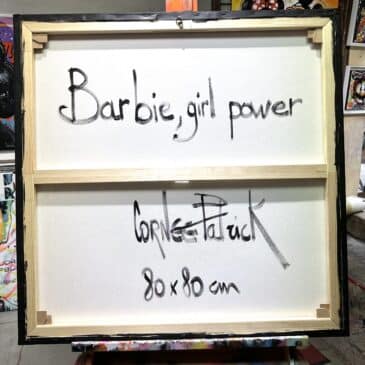 Barbie, girl power
CORNEE Patrick
80 x 80 cm